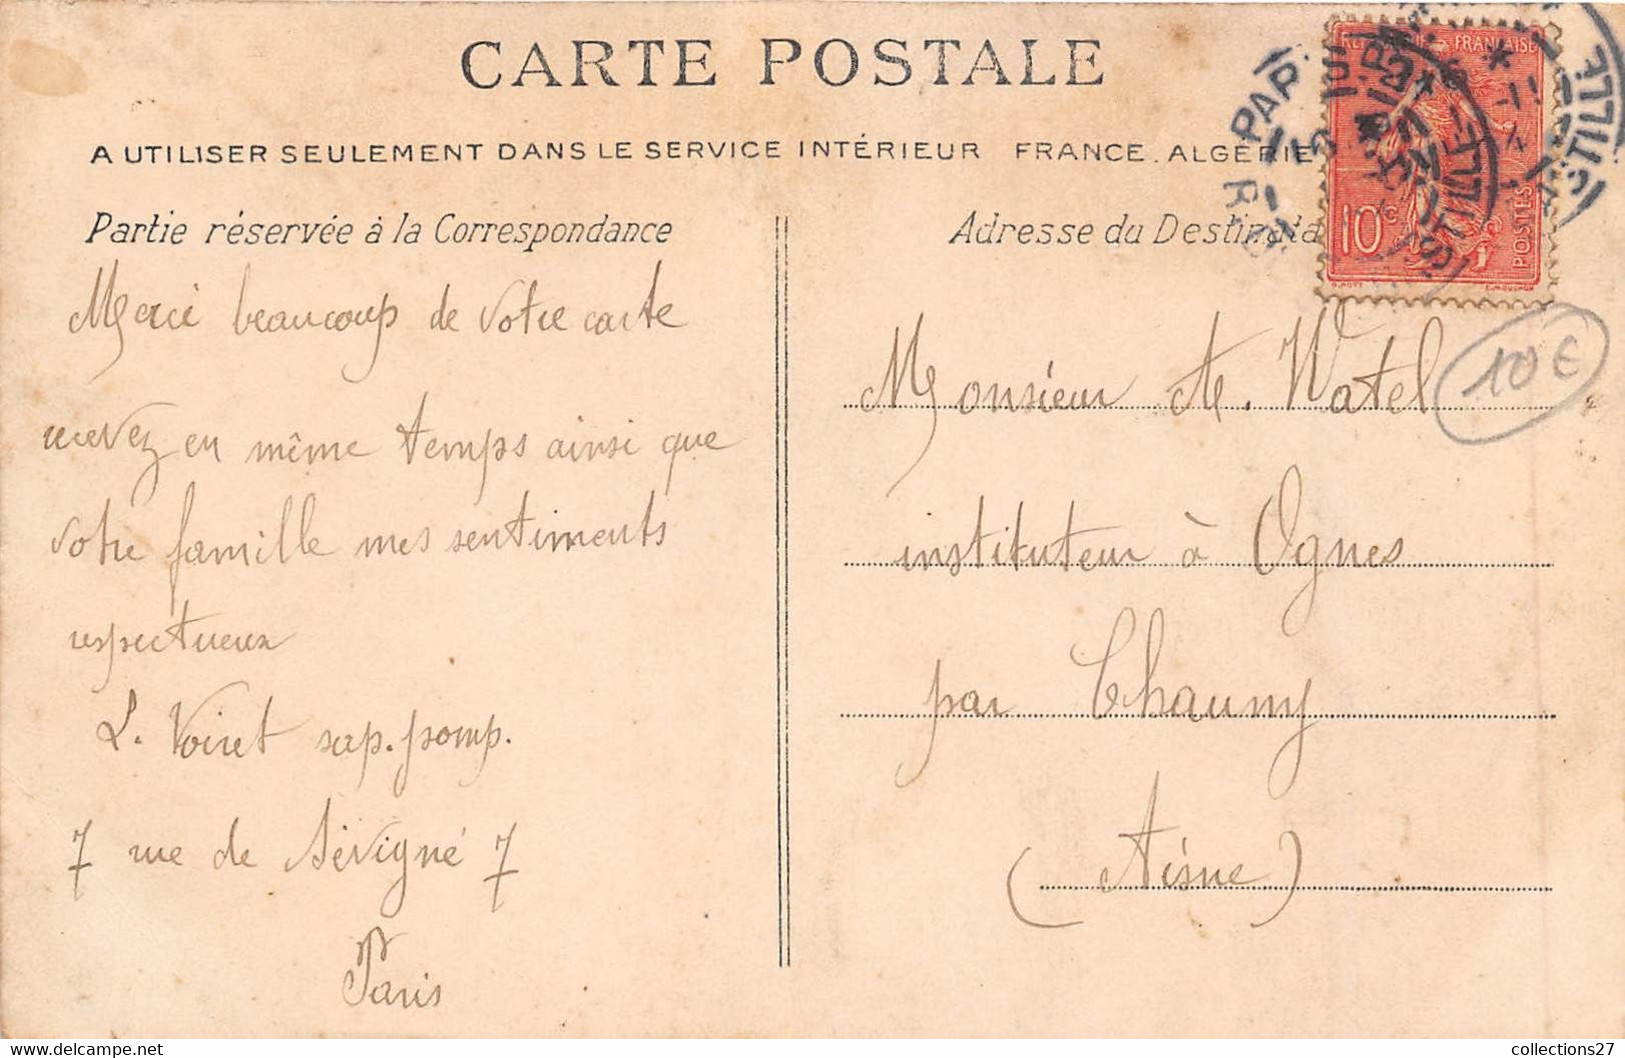 CARTE POSTALE
A UTILISER SEULEMENT DANS LE SERVICE INTÉRIEUR FRANCE. ALGÉRIE
Partie réservée à la Correspondance
Merci beaucoup de votre carte
recevez en même temps ainsi que
votre famille mes sentiments
respectueux
L. Voiret sap. pomp.
7 rue de Sévigné 7
Paris
Adresse du Destinata
REPUBLIQUE FRANÇAISE
10c
POSTES
PAR
STILLE
STILLE
10€
Monsieur A. Watel
instituteur à Ognes
par Chauny
(Aisne)
collections27